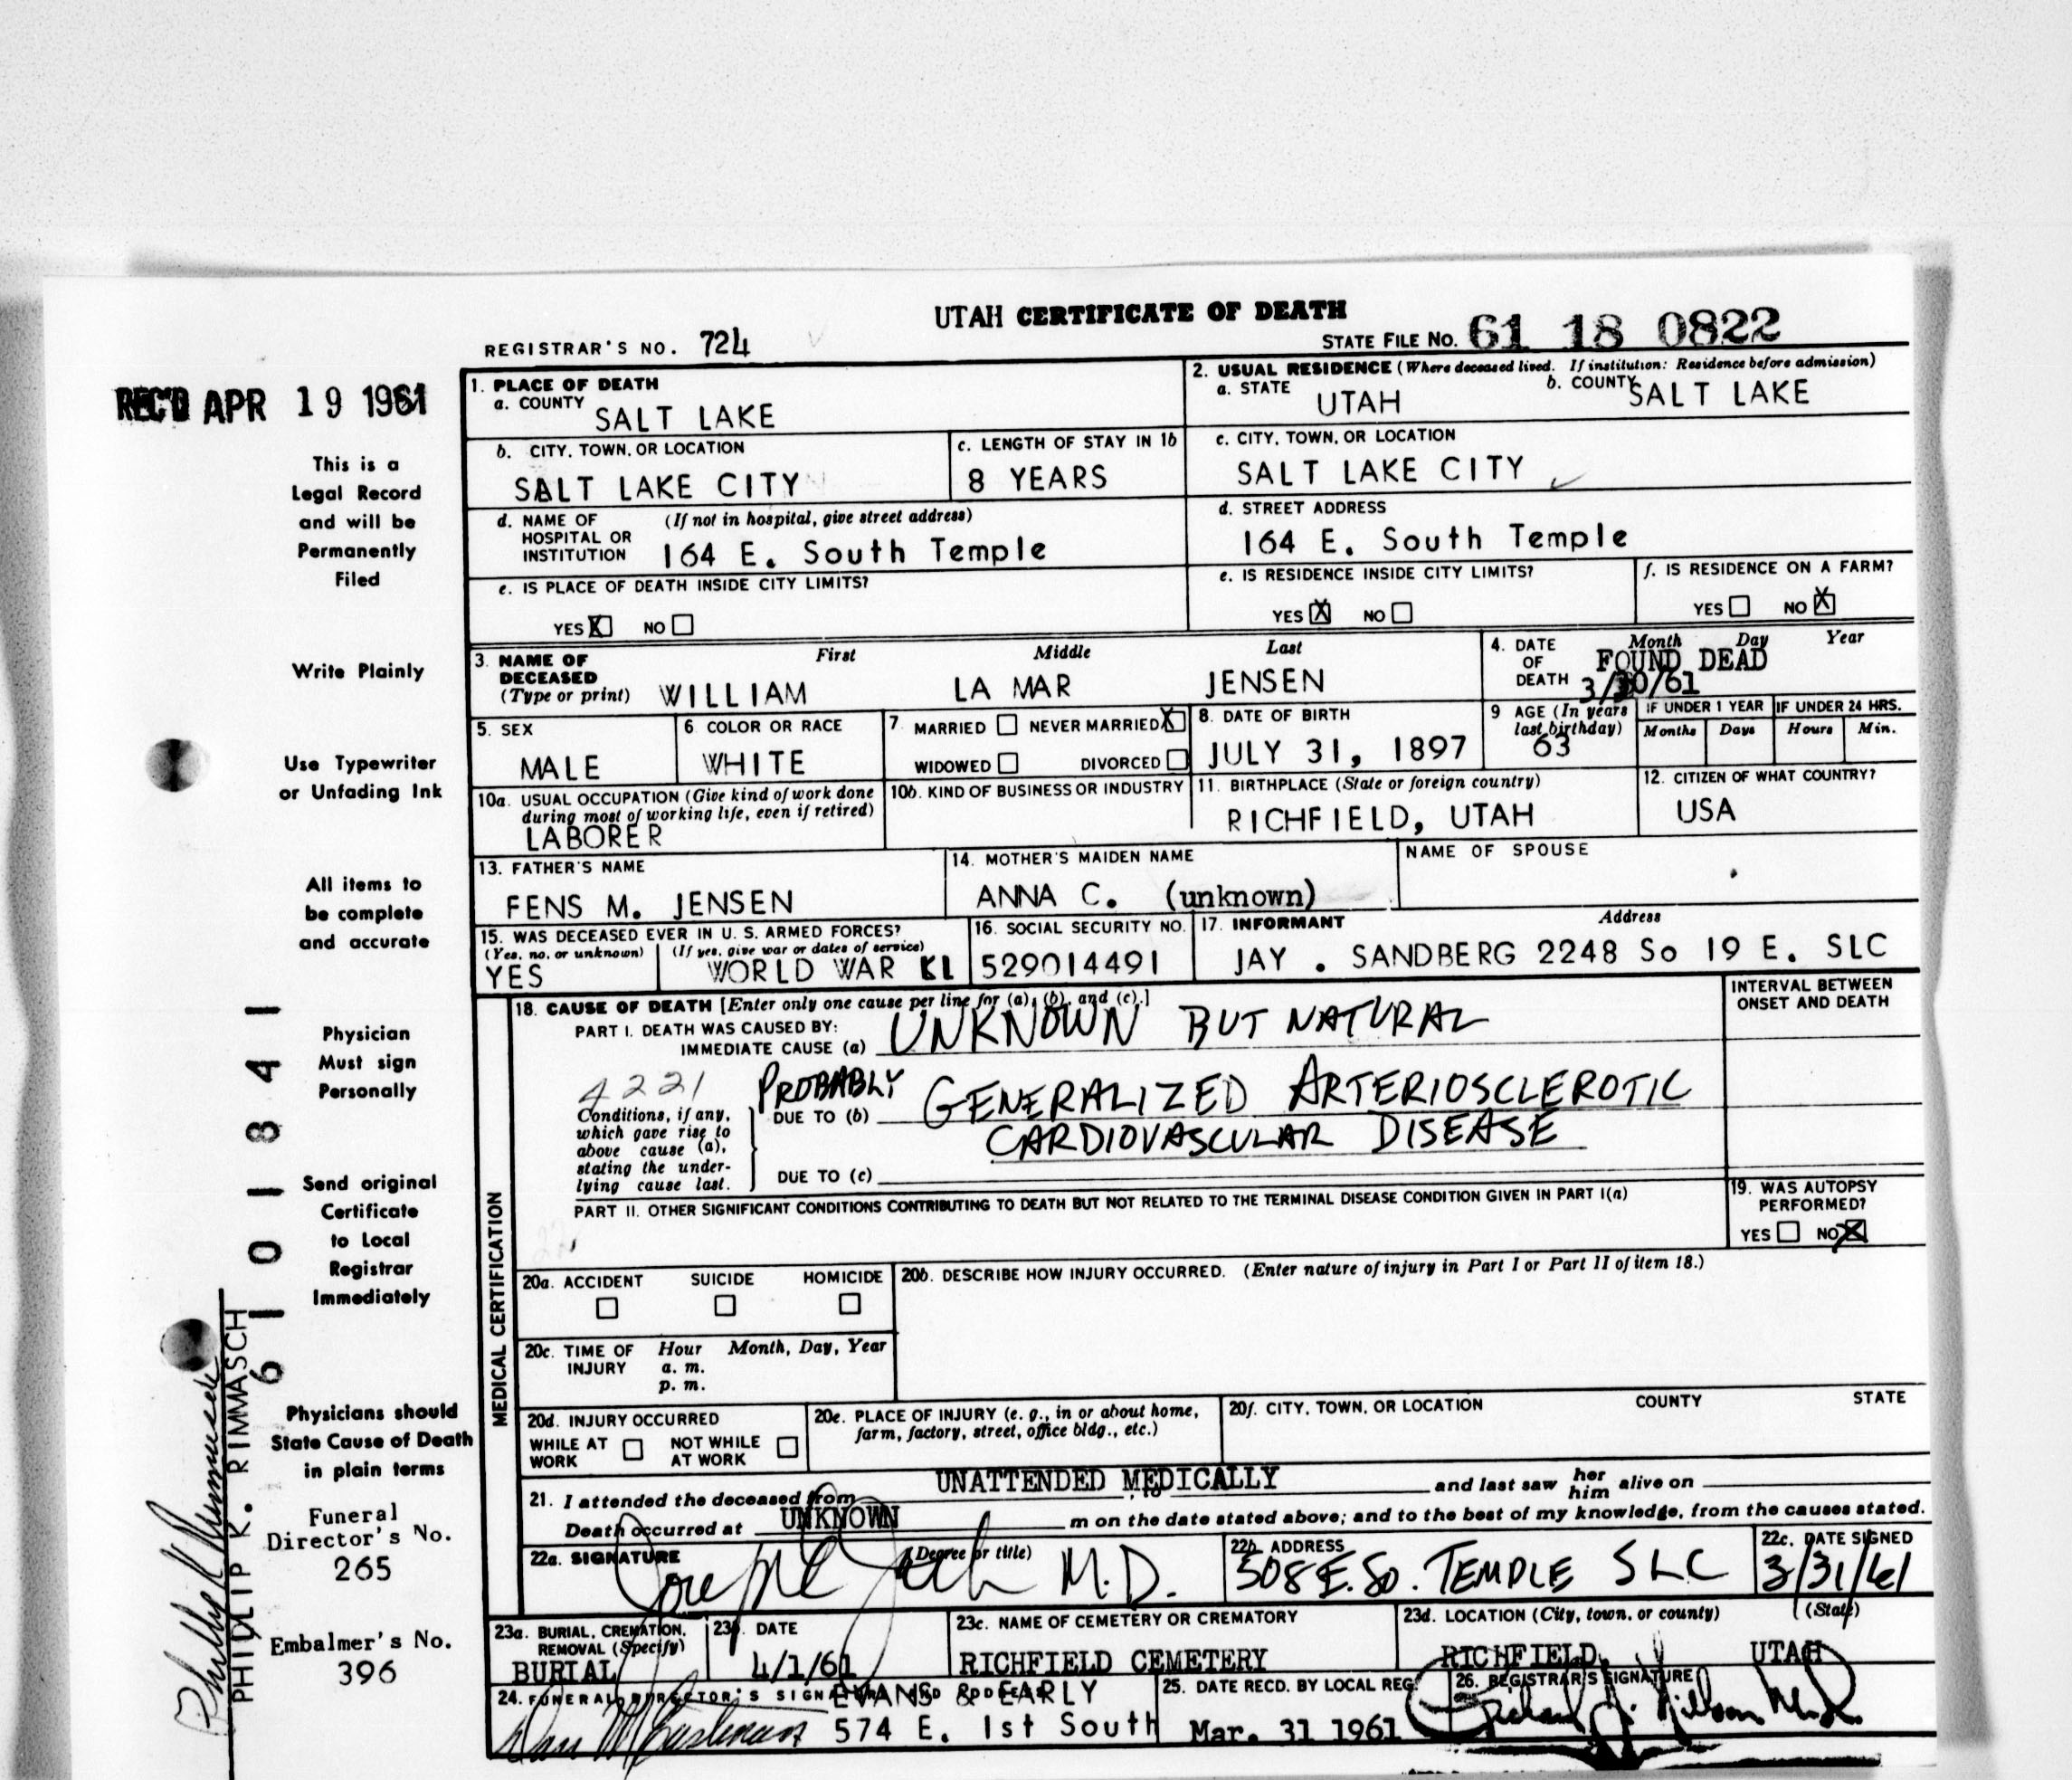 UTAH CERTIFICATE OF DEATH
REGISTRAR'S NO. 724
STATE FILE NO. 61 18 0822
REC'D APR 19 1961
This is a
Legal Record
and will be
Permanently
Filed
Write Plainly
Use Typewriter
or Unfading Ink
All items to
be complete
and accurate
Physician
Must sign
Personally
Send original
Certificate
to Local
Registrar
Immediately
Physicians should
State Cause of Death
in plain terms
Funeral
Director's No.
265
Embalmer's No.
396
PHILIP K. RIMMASCH
6101841
1. PLACE OF DEATH
a. COUNTY SALT LAKE
2. USUAL RESIDENCE (Where deceased lived. If institution: Residence before admission)
a. STATE UTAH b. COUNTY SALT LAKE
b. CITY, TOWN, OR LOCATION SALT LAKE CITY
c. LENGTH OF STAY IN 1b 8 YEARS
c. CITY, TOWN, OR LOCATION SALT LAKE CITY
d. NAME OF HOSPITAL OR INSTITUTION (If not in hospital, give street address) 164 E. South Temple
d. STREET ADDRESS 164 E. South Temple
e. IS PLACE OF DEATH INSIDE CITY LIMITS?
YES X NO
e. IS RESIDENCE INSIDE CITY LIMITS?
YES X NO
f. IS RESIDENCE ON A FARM?
YES NO X
3. NAME OF DECEASED (Type or print) First Middle Last
WILLIAM LA MAR JENSEN
4. DATE OF DEATH Month Day Year
FOUND DEAD
3/30/61
5. SEX MALE
6. COLOR OR RACE WHITE
7. MARRIED NEVER MARRIED X
WIDOWED DIVORCED
8. DATE OF BIRTH JULY 31, 1897
9 AGE (In years last birthday) 63
IF UNDER 1 YEAR Months Days
IF UNDER 24 HRS. Hours Min.
10a. USUAL OCCUPATION (Give kind of work done during most of working life, even if retired)
LABORER
10b. KIND OF BUSINESS OR INDUSTRY
11. BIRTHPLACE (State or foreign country)
RICHFIELD, UTAH
12. CITIZEN OF WHAT COUNTRY?
USA
13. FATHER'S NAME
FENS M. JENSEN
14. MOTHER'S MAIDEN NAME
ANNA C. (unknown)
NAME OF SPOUSE
15. WAS DECEASED EVER IN U. S. ARMED FORCES?
(Yes, no, or unknown) (If yes, give war or dates of service)
YES WORLD WAR
16. SOCIAL SECURITY NO.
529014491
17. INFORMANT Address
JAY . SANDBERG 2248 So 19 E. SLC
MEDICAL CERTIFICATION
18. CAUSE OF DEATH [Enter only one cause per line for (a), (b), and (c).]
INTERVAL BETWEEN ONSET AND DEATH
PART I. DEATH WAS CAUSED BY:
IMMEDIATE CAUSE (a) UNKNOWN BUT NATURAL
4221
Conditions, if any,
which gave rise to
above cause (a),
stating the under-
lying cause last.
PROBABLY
DUE TO (b) GENERALIZED ARTERIOSCLEROTIC
CARDIOVASCULAR DISEASE
DUE TO (c)
PART II. OTHER SIGNIFICANT CONDITIONS CONTRIBUTING TO DEATH BUT NOT RELATED TO THE TERMINAL DISEASE CONDITION GIVEN IN PART I(a)
19. WAS AUTOPSY PERFORMED?
YES NO X
20a. ACCIDENT SUICIDE HOMICIDE
20b. DESCRIBE HOW INJURY OCCURRED. (Enter nature of injury in Part I or Part II of item 18.)
20c. TIME OF INJURY Hour Month, Day, Year
a. m.
p. m.
20d. INJURY OCCURRED
WHILE AT WORK NOT WHILE AT WORK
20e. PLACE OF INJURY (e. g., in or about home, farm, factory, street, office bldg., etc.)
20f. CITY, TOWN, OR LOCATION COUNTY STATE
21. I attended the deceased from UNATTENDED MEDICALLY, to and last saw her him alive on
Death occurred at UNKNOWN m on the date stated above; and to the best of my knowledge, from the causes stated.
22a. SIGNATURE (Degree or title) M.D.
22b. ADDRESS 508 E. So. TEMPLE SLC
22c. DATE SIGNED 3/31/61
23a. BURIAL, CREMATION, REMOVAL (Specify)
BURIAL
23b. DATE
4/1/61
23c. NAME OF CEMETERY OR CREMATORY
RICHFIELD CEMETERY
23d. LOCATION (City, town, or county) (State)
RICHFIELD, UTAH
24. FUNERAL DIRECTOR'S SIGNATURE AND ADDRESS
EVANS & EARLY
574 E. 1st South
25. DATE RECD. BY LOCAL REG.
Mar. 31 1961
26. REGISTRAR'S SIGNATURE